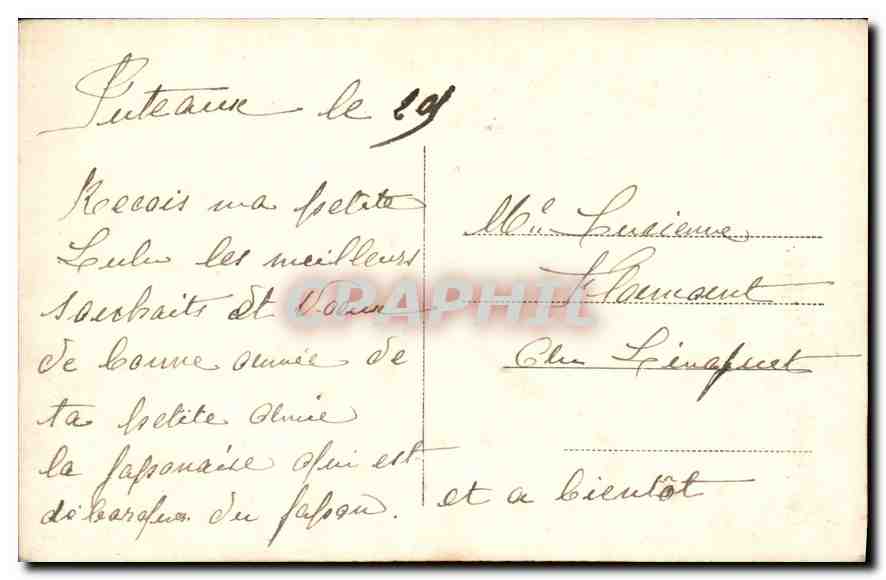 Puteaux le 29
Recois ma petite
Lulu les meilleurs
souhaits et Vœux
de bonne année de
ta petite amie
la japonaise qui est
débarque du Japon.
et a bientôt
Melle Lucienne
Flamant
CPAPHIL